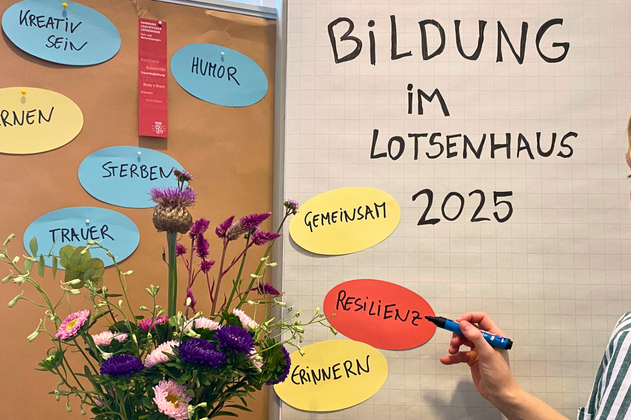 KREATIV
SEIN
HUMOR
RNEN
STERBEN
TRAUER
BILDUNG
IM
LOTSENHAUS
2025
GEMEINSAM
RESILIENZ
ERINNERN